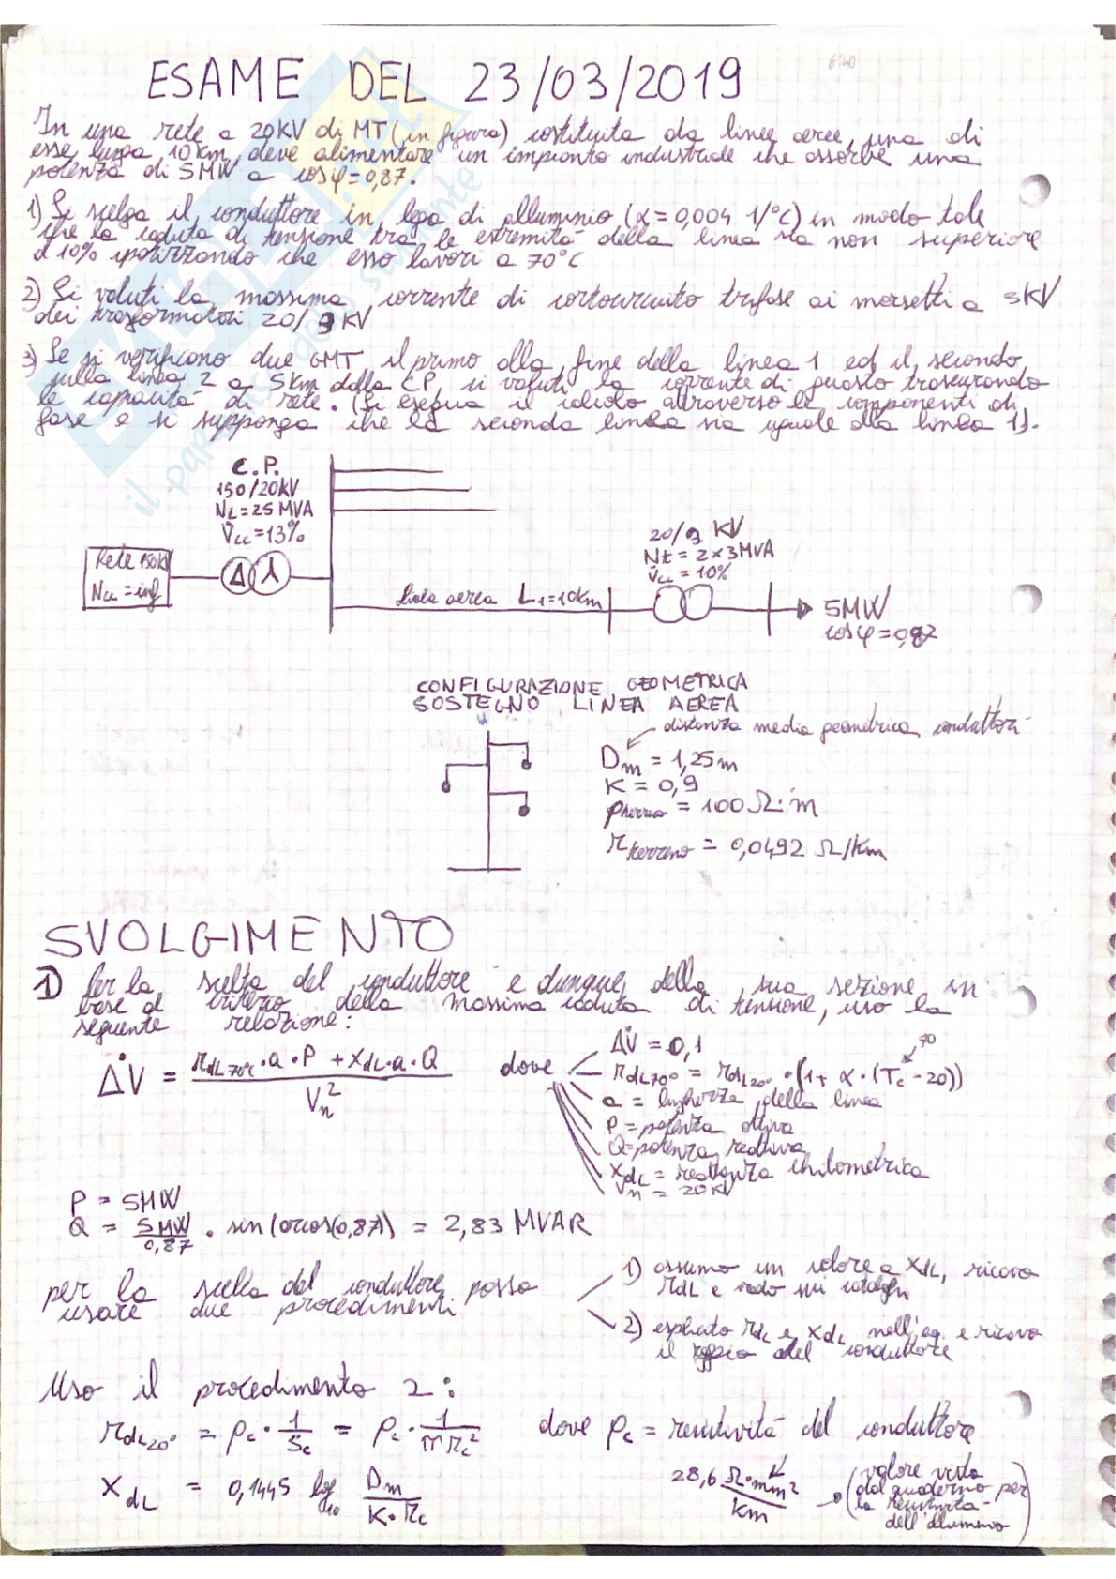 ESAME DEL 23/03/2019
In una rete a 20KV di MT (in figura) costituita da linee aeree, una di
esse, lunga 10 km, deve alimentare un impianto industriale che assorbe una
potenza di 5MW a cosφ=0,87.
1) Si scelga il conduttore in lega di alluminio (α=0,004 1/°C) in modo tale
che la caduta di tensione tra le estremità della linea sia non superiore
al 10% ipotizzando che esso lavori a 70°C
2) Si valuti la massima corrente di cortocircuito trifase ai morsetti a 3KV
dei trasformatori 20/3 KV
3) Se si verificono due GMT il primo alla fine della linea 1 ed il secondo
sulla linea 2 a 5km dalla CP, si valuti la corrente di guasto trascurando
le capacità di rete. (Si esegua il calcolo attraverso le componenti di
fase e si supponga che la seconda linea sia uguale alla linea 1).
C.P.
150/20KV
NL=25MVA
V̇cc=13%
Rete 150KV
Ncc=inf
Δ
linea aerea L1=10km
20/3 KV
Nt = 2x3MVA
V̇cc = 10%
5MW
cosφ=0,87
CONFIGURAZIONE GEOMETRICA
SOSTEGNO LINEA AEREA
distanza media geometrica conduttori
Dm = 1,25m
K = 0,9
ρterreno = 100 Ω·m
rterreno = 0,0492 Ω/Km
SVOLGIMENTO
1) Per la scelta del conduttore e dunque della sua sezione in
base al criterio della massima caduta di tensione, uso la
seguente relazione:
ΔV̇ = (rdL70°C · a · P + xdL · a · Q) / Vn²
dove
ΔV̇ = 0,1
rdL70° = rdL20° · (1+ α · (Tc - 20))
70
a = lunghezza della linea
P = potenza attiva
Q = potenza reattiva
xdL = reattanza chilometrica
Vn = 20 KV
P = 5MW
Q = 5MW/0,87 · sin(arcos(0,87)) = 2,83 MVAR
per la scelta del conduttore posso
usare due procedimenti
1) assumo un valore a xdL, ricavo
rdL e vado sui cataloghi
2) esplicito rdL e xdL nell'eq. e ricavo
il raggio del conduttore
Uso il procedimento 2:
rdL20° = ρc · 1/Sc = ρc · 1/(π rc²) dove ρc = resistività del conduttore
xdL = 0,1445 log10 Dm/(K·rc)
28,6 Ω·mm²/km
(valore visto
dal quaderno per
la resistività
dell'alluminio)